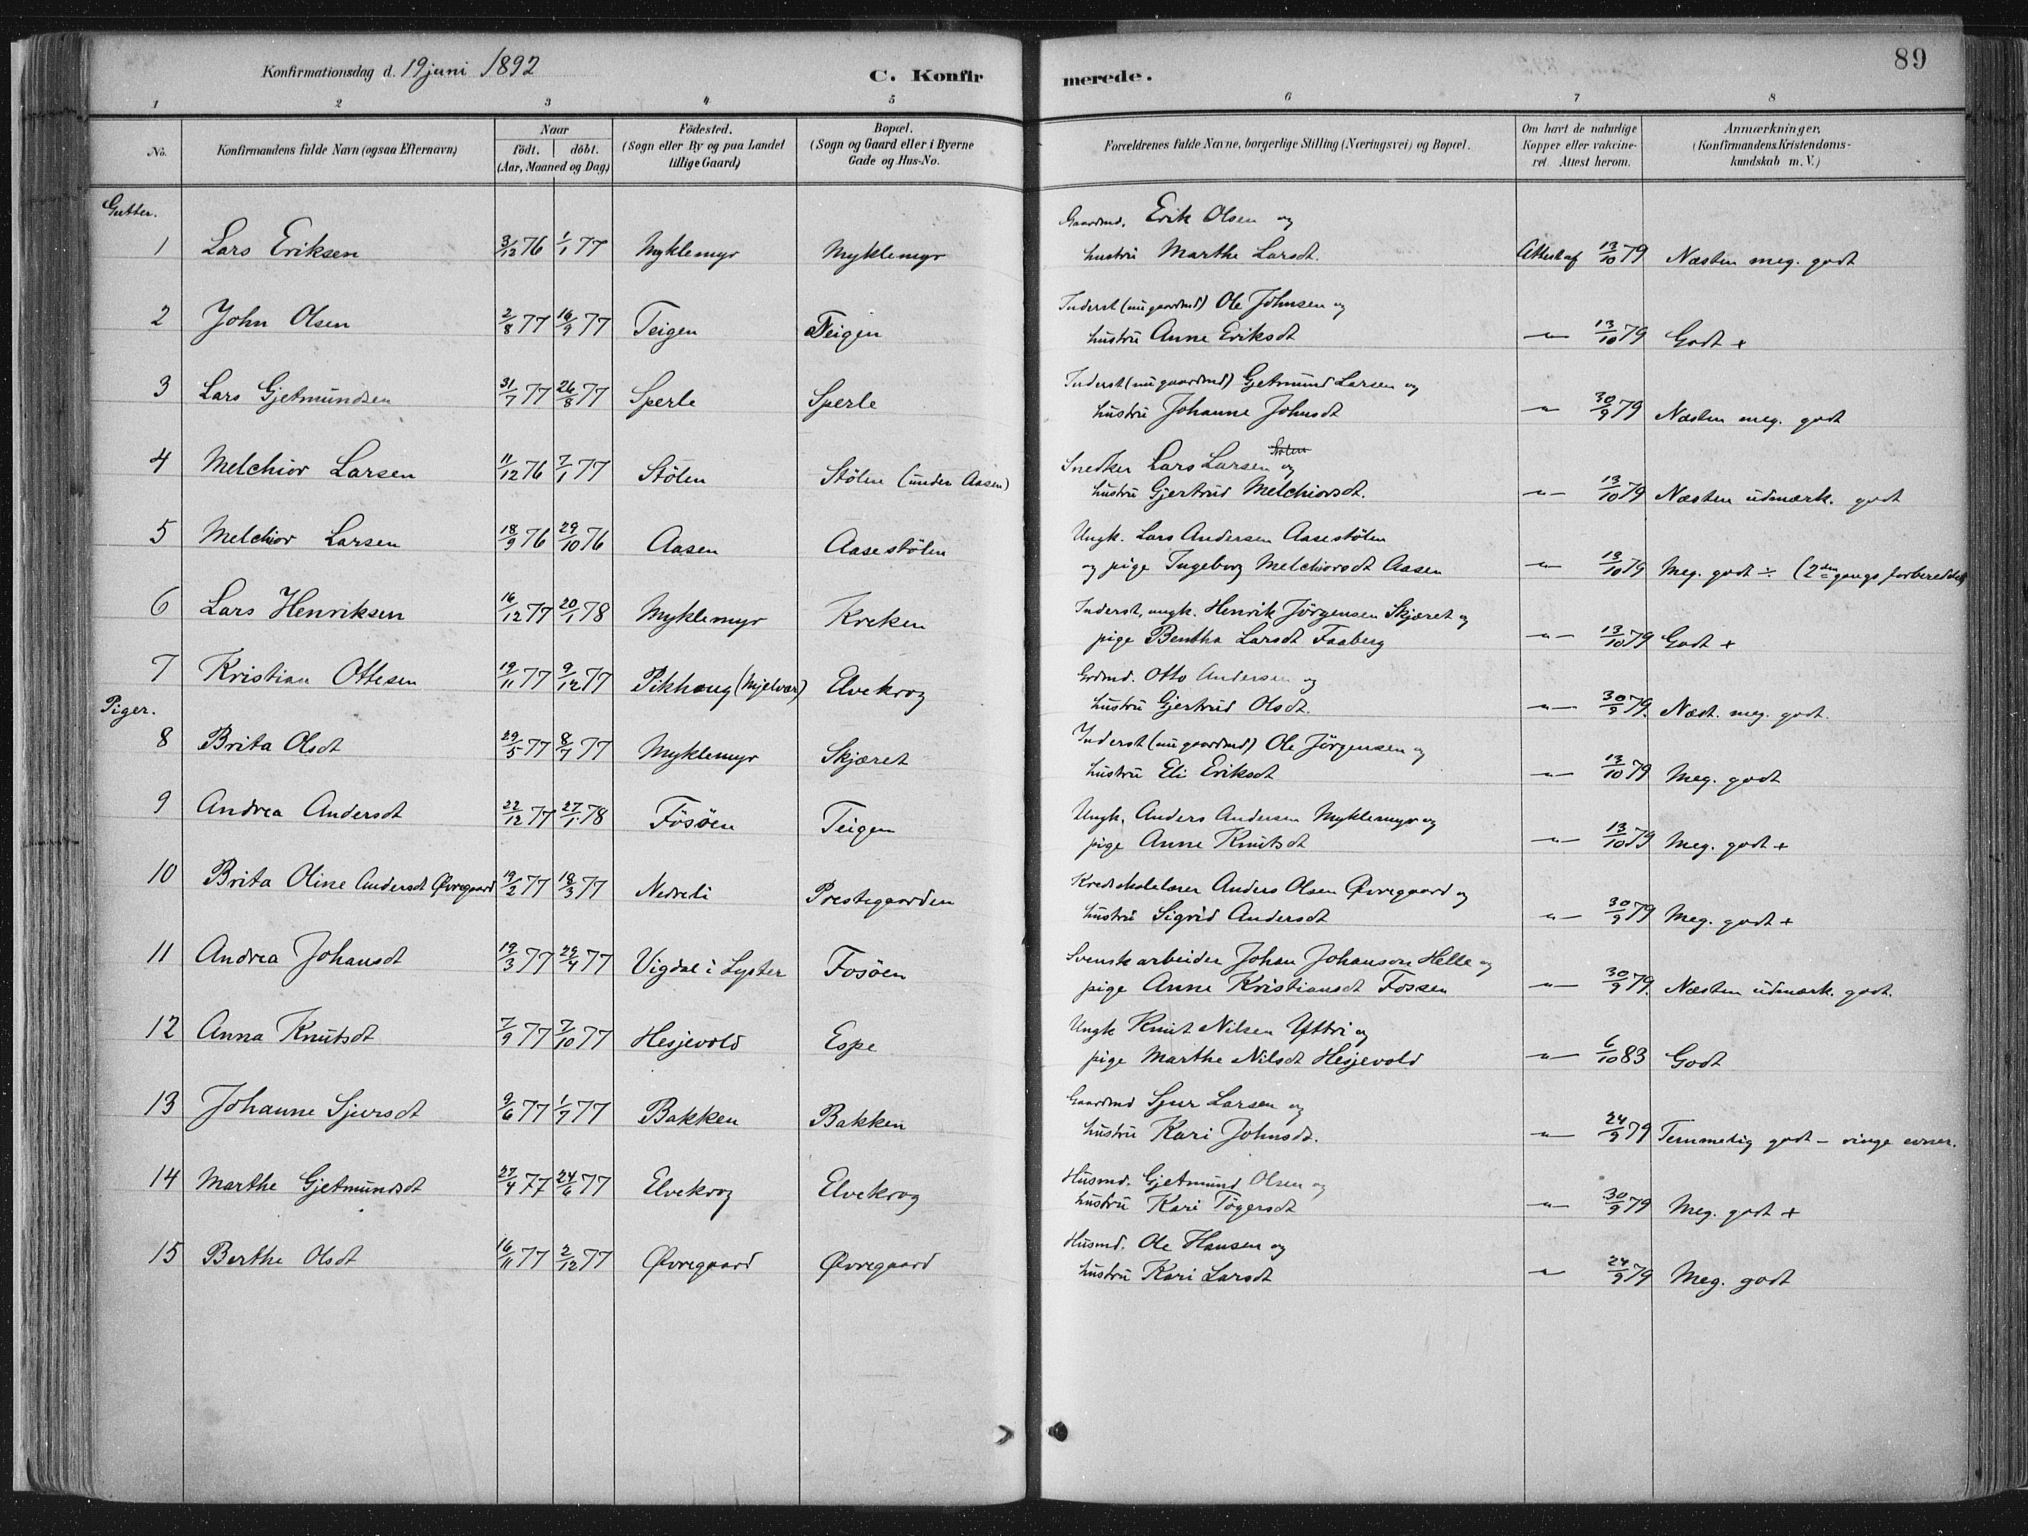 Konfirmationsdag d. 19 juni 1892
C. Konfirmerede.
89
1 2 3 4 5 6 7 8
No.
Konfirmandens fulde Navn (ogsaa Efternavn)
Naar
födt. döbt.
(Aar, Maaned og Dag)
Födested.
(Sogn eller By og paa Landet
tillige Gaard)
Bopæl.
(Sogn og Gaard eller i Byerne
Gade og Hus-No.
Forældrenes fulde Navne, borgerlige Stilling (Næringsvei) og Bopæl.
Om havt de naturlige
Kopper eller vakcine-
ret. Attest herom.
Anmærkninger,
(Konfirmandens Kristendoms-
kundskab m. V.)
Gutter.
Gaardmd. Erik Olsen og
1 Lars Eriksen 3/12 76 1/1 77 Myklemyr Myklemyr hustru Marthe Larsdt. Attest af 13/10 79 Næsten meg. godt
Inderst (nu gaardmd) Ole Johnsen og
2 John Olsen 2/8 77 16/9 77 Teigen Teigen hustru Anne Eriksdt " 13/10 79 Godt +
Inderst (nu gaardmd) Gjetmund Larsen og
3 Lars Gjetmundsen 31/7 77 26/8 77 Sperle Sperle hustru Johanne Johnsdt " 30/9 79 Næsten meg. godt
Snedker Lars Larsen Stølen og
4 Melchior Larsen 11/12 76 7/1 77 Stölen Stölen (under Aasen) hustru Gjertrud Melchiorsdt. " 13/10 79 Næsten udmærk. godt
Ungk. Lars Andersen Aasestölen
5 Melchior Larsen 18/9 76 29/10 76 Aasen Aasestölen og pige Ingeborg Melchiorsdt Aasen " 13/10 79 Meg. godt ÷ (2den gangs forberedelse)
Inderst, ungk. Henrik Jörgensen Skjæret og
6 Lars Henriksen 16/12 77 20/1 78 Myklemyr Kreken pige Bentha Larsdt Faaberg " 13/10 79 Godt +
Grdmd. Otto Andersen og
7 Kristian Ottesen 19/11 77 9/12 77 Pikhaug (Mjelvær) Elvekrog hustru Gjertrud Olsdt. " 30/9 79. Næst. meg. godt.
Piger.
Inderst (nu gaardmd) Ole Jörgensen og
8 Brita Olsdt 29/5 77 8/7 77 Myklemyr Skjæret hustru Eli Eriksdt " 13/10 79 Meg. godt
Ungk. Anders Andersen Myklemyr og
9 Andrea Andersdt 22/12 77 27/1 78 Fosöen Teigen pige Anne Knutsdt " 13/10 79 Meg. godt +
Kredsskolelærer Anders Olsen Øvregaard og
10 Brita Oline Andersdt Øvregaard 19/2 77 18/3 77 Nedreli Prestegaarden hustru Sigrid Andersdt " 30/9 79 Meg. godt +
Svensk arbeider Johan Johanson Helle og
11 Andrea Johansdt 19/3 77 29/4 77 Vigdal i Lyster Fosöen pige Anne Kristiansdt Fossen " 30/9 79. Næsten udmærk. godt.
Ungk Knut Nilsen Yttri og
12 Anna Knutsdt 7/9 77 7/10 77 Hesjevold Espe pige Marthe Nilsdt Hesjevold " 6/10 83 Godt
Gaardmd Sjur Larsen og
13 Johanne Sjursdt 9/6 77 1/7 77 Bakken Bakken hustru Kari Johnsdt. " 24/9 79 Temmelig godt - ringe evner.
Husmd. Gjetmund Olsen og
14 Marthe Gjetmundsdt 27/4 77 24/6 77 Elvekrog Elvekrog hustru Kari Tögersdt " 30/9 79 Meg. godt +
Husmd. Ole Hansen og
15 Berthe Olsdt 16/11 77 2/12 77 Øvregaard Øvregaard hustru Kari Larsdt " 24/9 79 Meg. godt